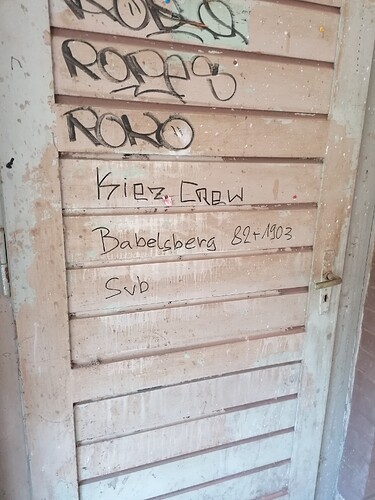 ROPES
ROKO
Kiez Crew
Babelsberg 82+1903
Svb